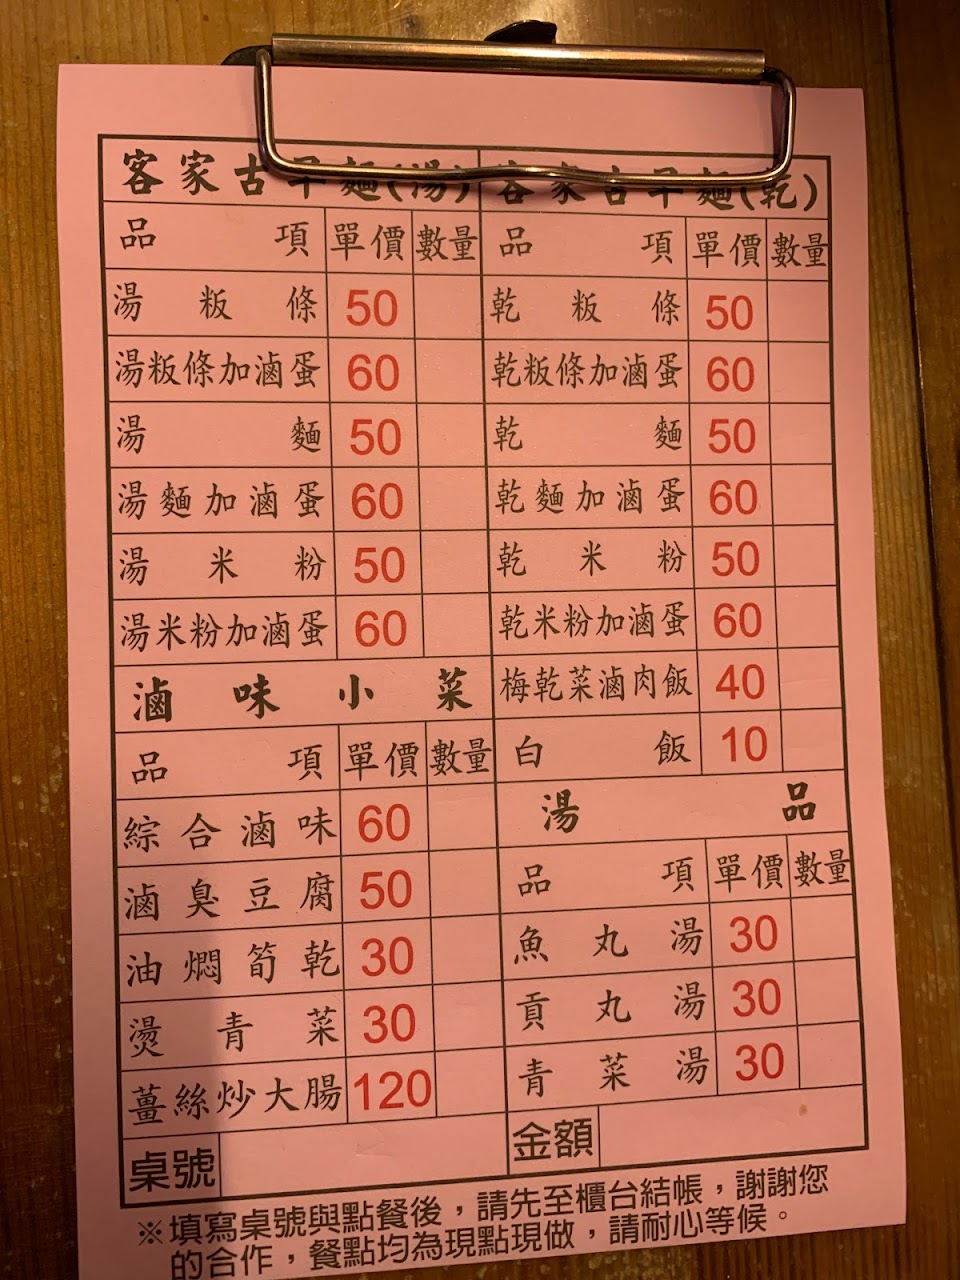 客家古早麵(湯)
品項 單價 數量
湯粄條 50
湯粄條加滷蛋 60
湯麵 50
湯麵加滷蛋 60
湯米粉 50
湯米粉加滷蛋 60
滷味小菜
品項 單價 數量
綜合滷味 60
滷臭豆腐 50
油燜筍乾 30
燙青菜 30
薑絲炒大腸 120
客家古早麵(乾)
品項 單價 數量
乾粄條 50
乾粄條加滷蛋 60
乾麵 50
乾麵加滷蛋 60
乾米粉 50
乾米粉加滷蛋 60
梅乾菜滷肉飯 40
白飯 10
湯品
品項 單價 數量
魚丸湯 30
貢丸湯 30
青菜湯 30
桌號
金額
※填寫桌號與點餐後，請先至櫃台結帳，謝謝您
的合作，餐點均為現點現做，請耐心等候。